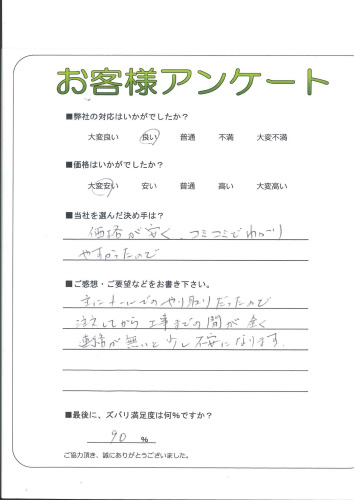 お客様アンケート
■弊社の対応はいかがでしたか？
大変良い 良い 普通 不満 大変不満
■価格はいかがでしたか？
大変安い 安い 普通 高い 大変高い
■当社を選んだ決め手は？
価格が安く、コミコミでわかり
やすかったので
■ご感想・ご要望などをお書き下さい。
主にメールでのやり取りだったので
注文してから工事までの間が全く
連絡が無いと少し不安になります。
■最後に、ズバリ満足度は何%ですか？
90 %
ご協力頂き、誠にありがとうございました。